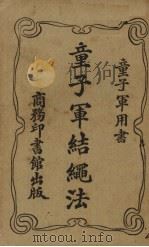 童子軍用書
童子軍結繩法
商務印書館出版
www.mtoou.info